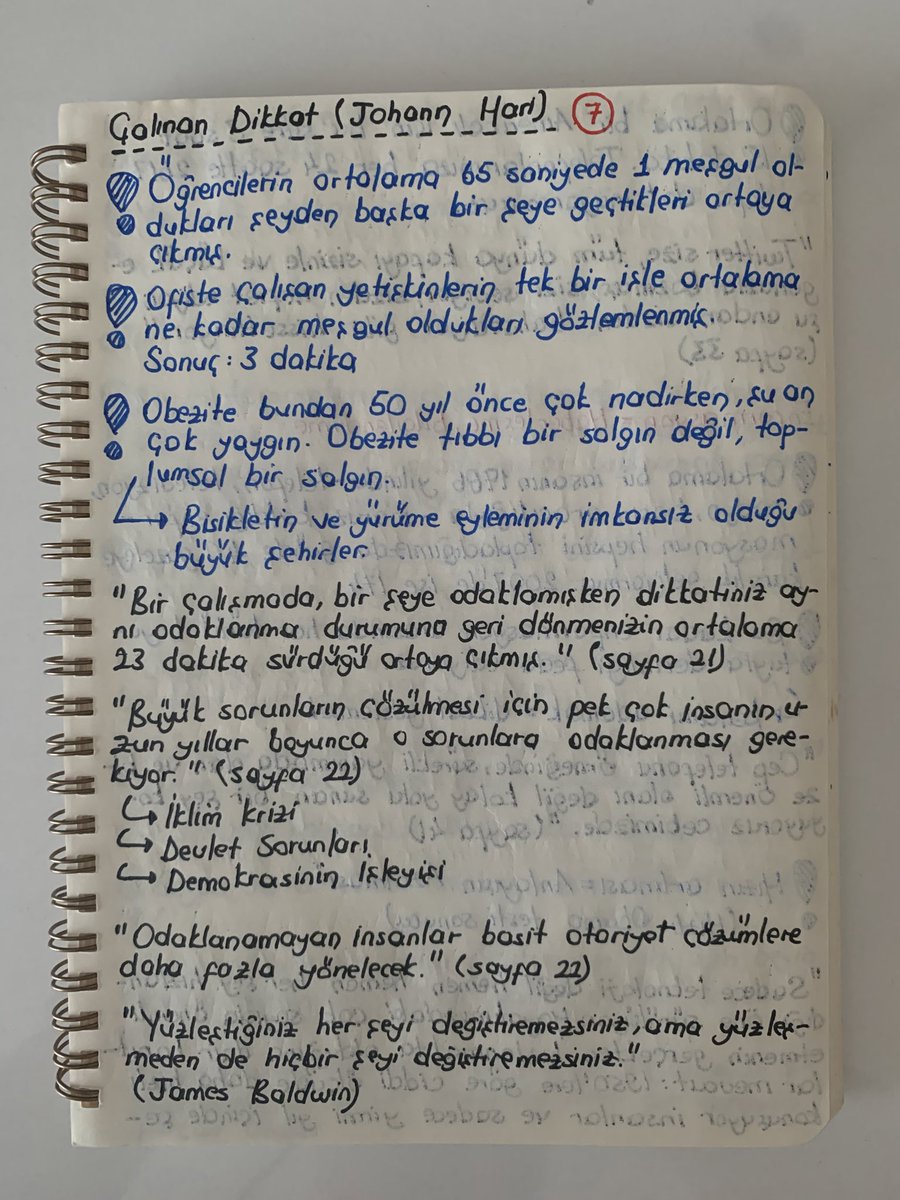 Çalınan Dikkat (Johann Hari) 7
Öğrencilerin ortalama 65 saniyede 1 meşgul ol-
dukları şeyden başka bir şeye geçtikleri ortaya
çıkmış.
Ofiste çalışan yetişkinlerin tek bir işle ortalama
ne kadar meşgul oldukları gözlemlenmiş.
Sonuç: 3 dakika
Obezite bundan 50 yıl önce çok nadirken, şu an
çok yaygın. Obezite tıbbı bir salgın değil, top-
lumsal bir salgın.
↳ Bisikletin ve yürüme eyleminin imkansız olduğu
büyük şehirler.
"Bir çalışmada, bir şeye odaklamışken dikkatiniz ay-
nı odaklanma durumuna geri dönmenizin ortalama
23 dakika sürdüğü ortaya çıkmış." (sayfa 21)
"Büyük sorunların çözülmesi için pek çok insanın u-
zun yıllar boyunca o sorunlara odaklanması gere-
kiyor." (sayfa 22)
↳ İklim Krizi
↳ Devlet Sorunları
↳ Demokrasinin İşleyişi
"Odaklanamayan insanlar basit otoriyet çözümlere
daha fazla yönelecek." (sayfa 22)
"Yüzleştiğiniz her şeyi değiştiremezsiniz, ama yüzleş-
meden de hiçbir şeyi değiştiremezsiniz."
(James Baldwin)